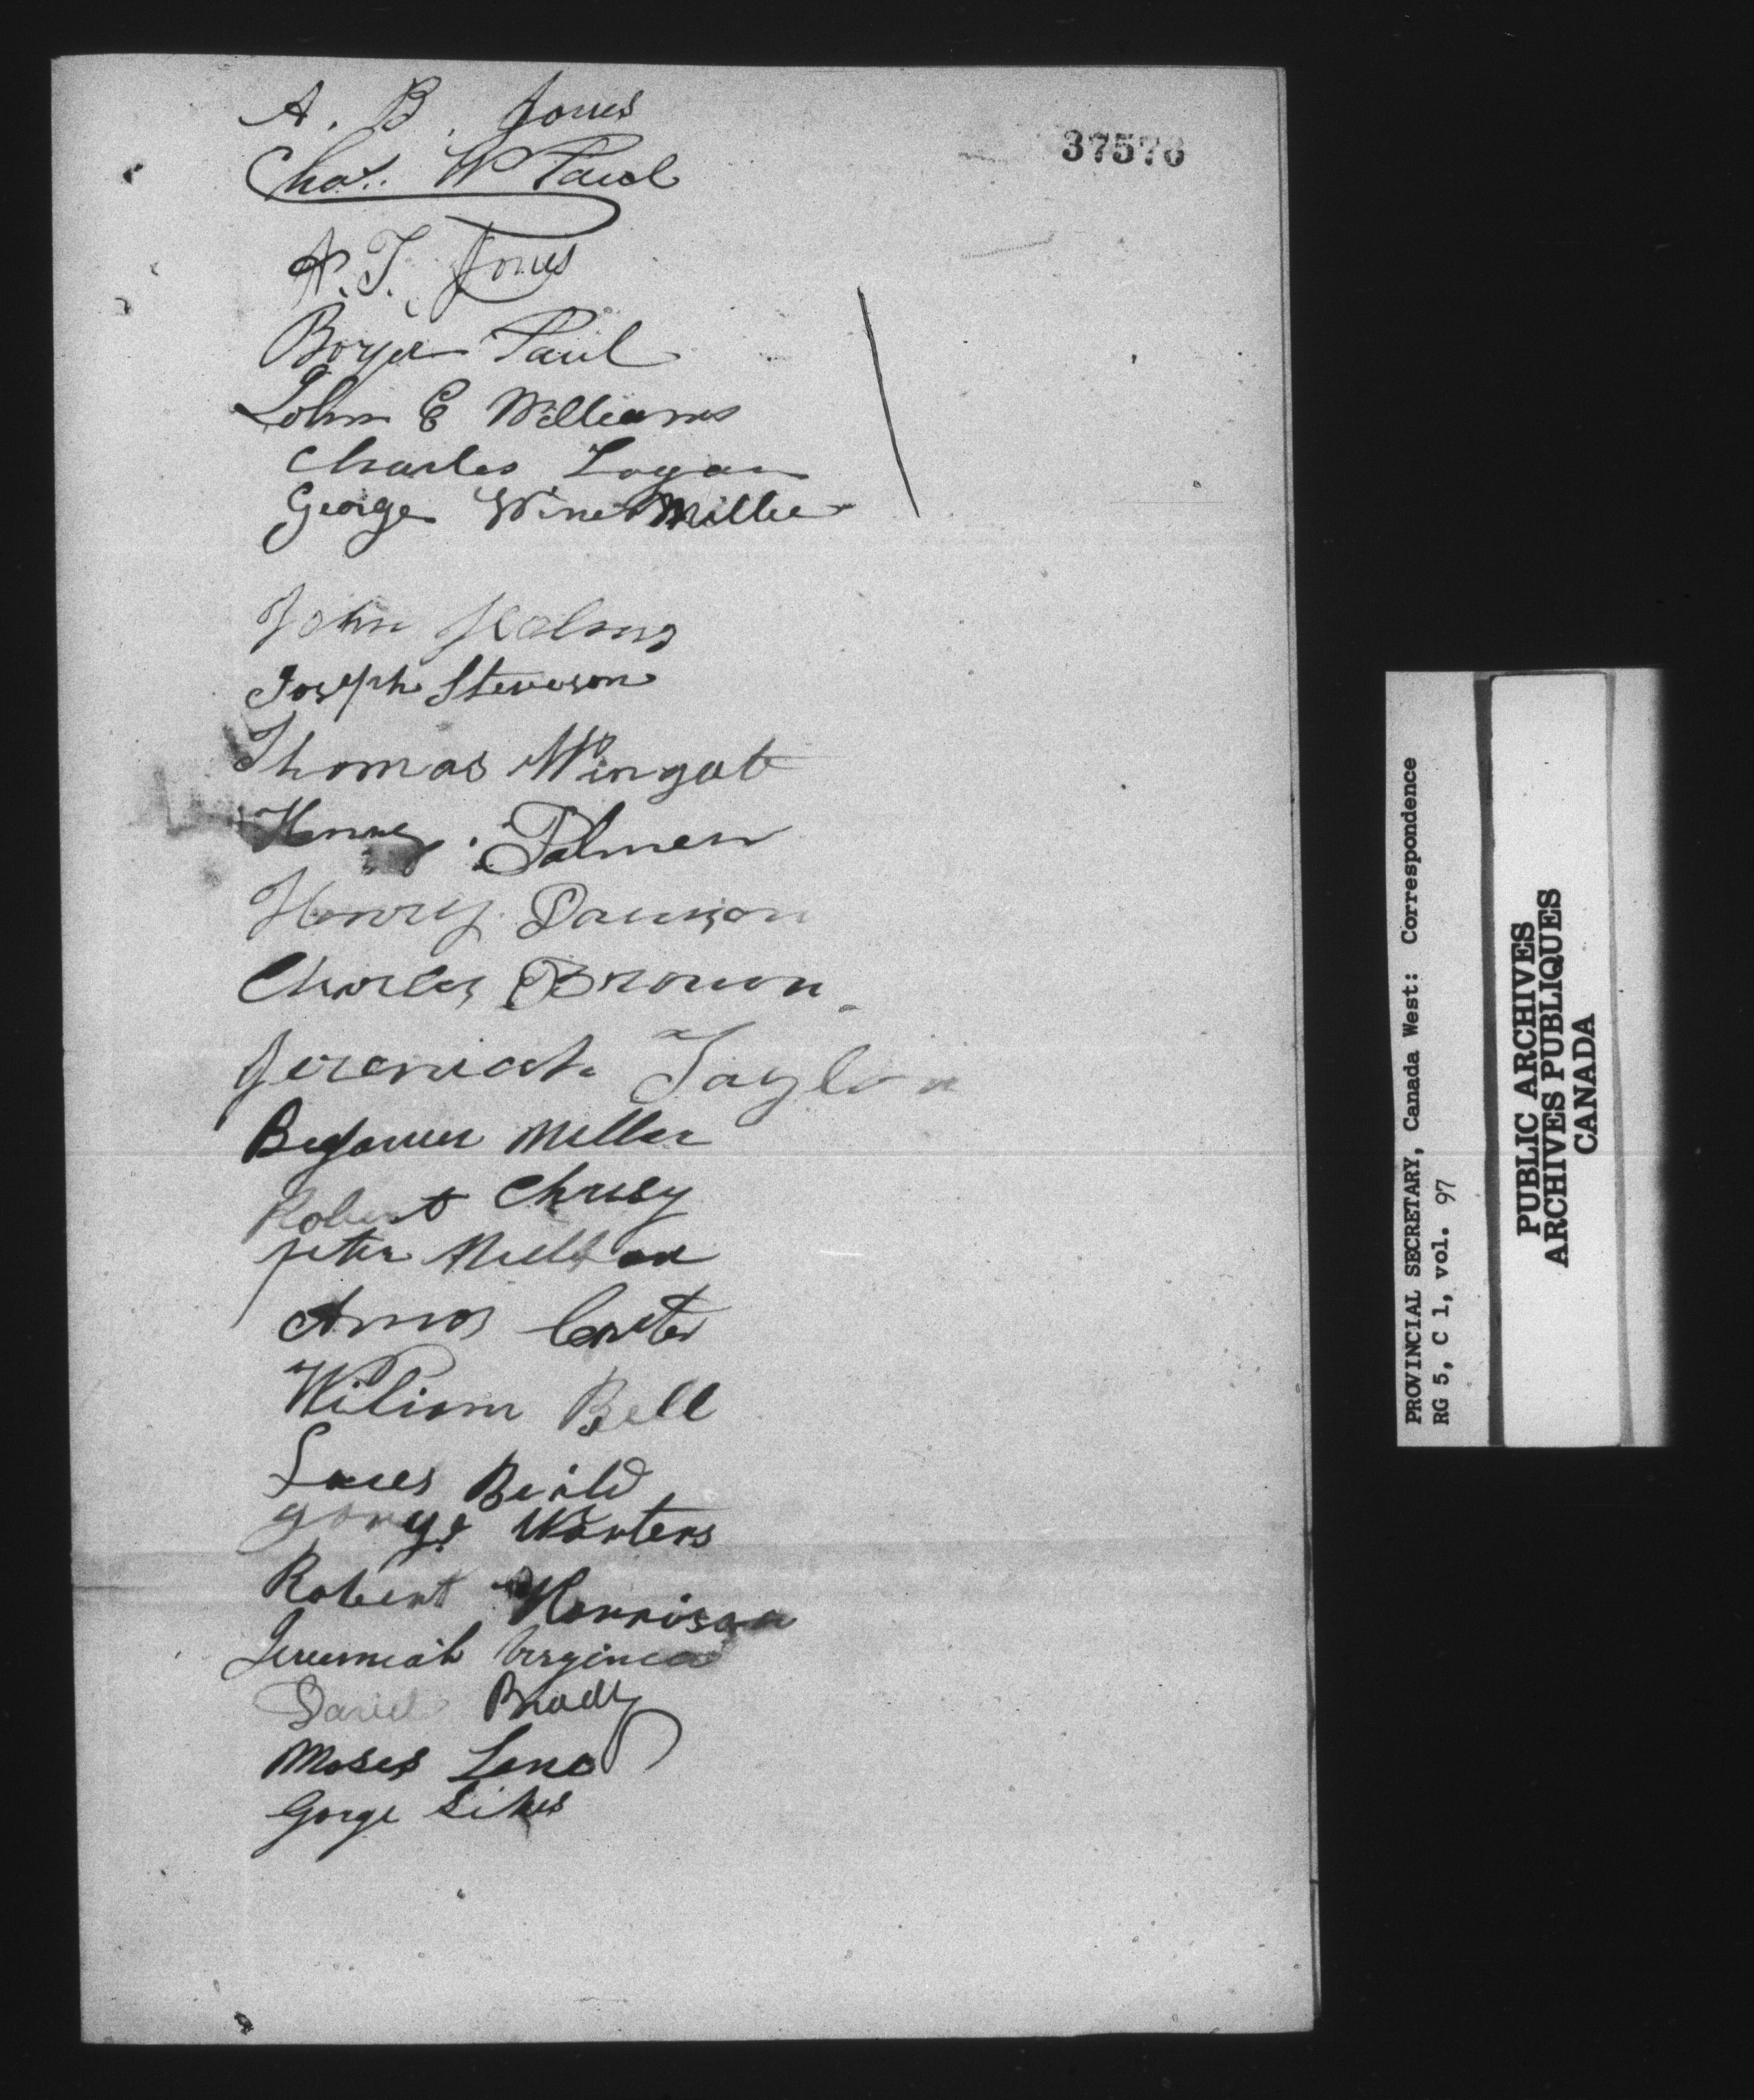 A. B. Jones
37576
Chas. W Paul
A. T. Jones
Boyer Paul
John E Williams
Charles Logan
George Winemiller
John
Joseph Steveson
Thomas Wingate
Henry Palmer
Henry Dawson
Charles Brown
Jeremiah Taylor
Miller
Robert Chrisy
peter
Amos Carter
Wiliam Bell
George Warters
Robert Harrison
Jeremiah Virginia
Daniel Brady
Moses Lane
Gorge Sikes
PROVINCIAL SECRETARY, Canada West: Correspondence
RG 5, C 1, vol. 97
PUBLIC ARCHIVES
ARCHIVES PUBLIQUES
CANADA